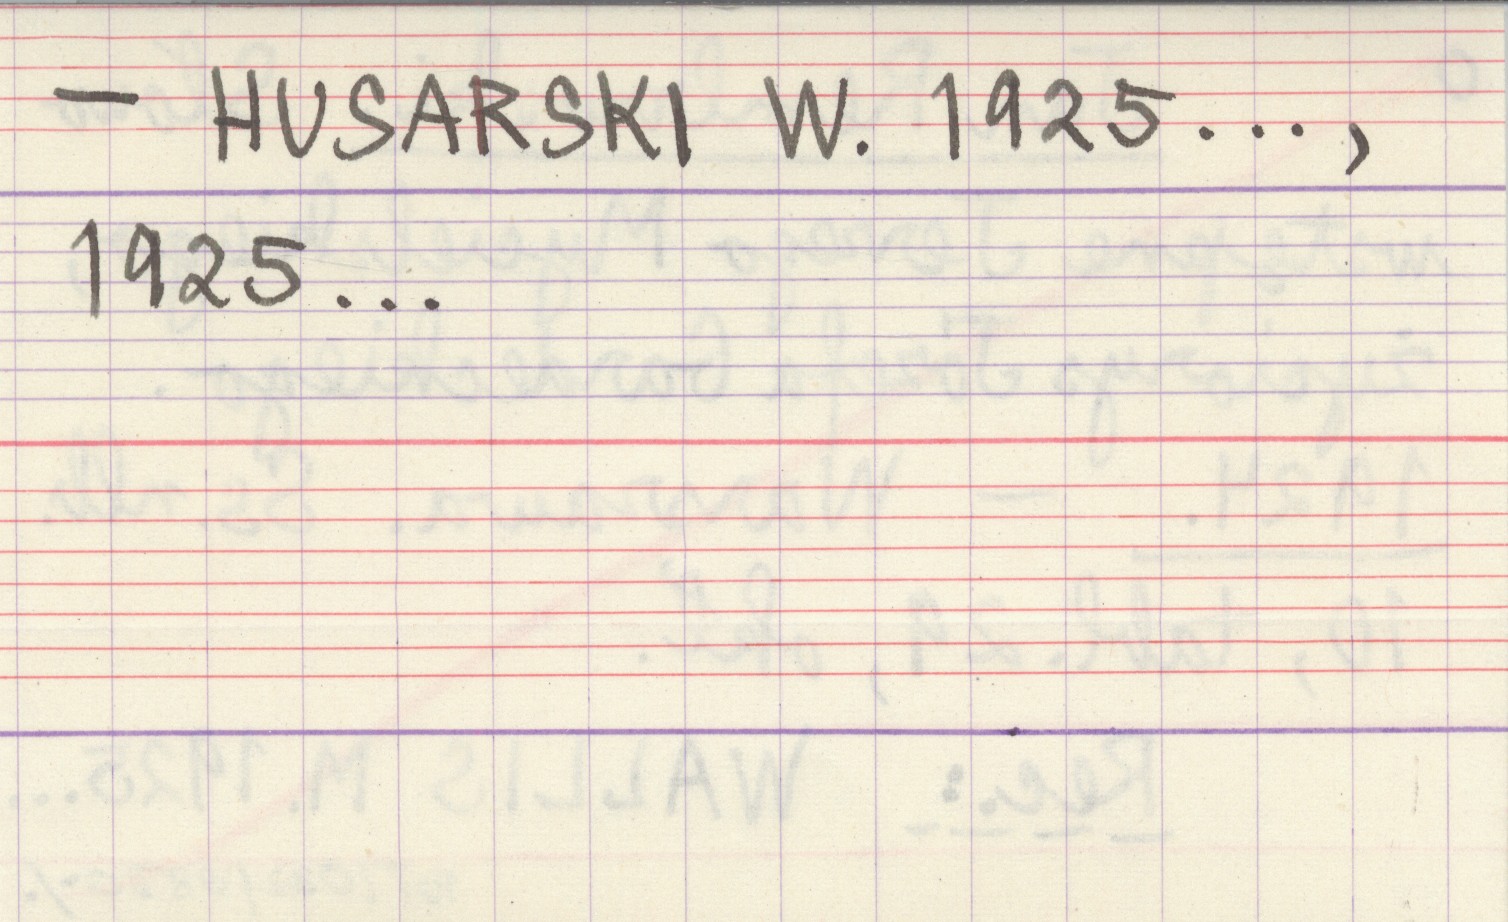 — HUSARSKI W. 1925...,
1925...